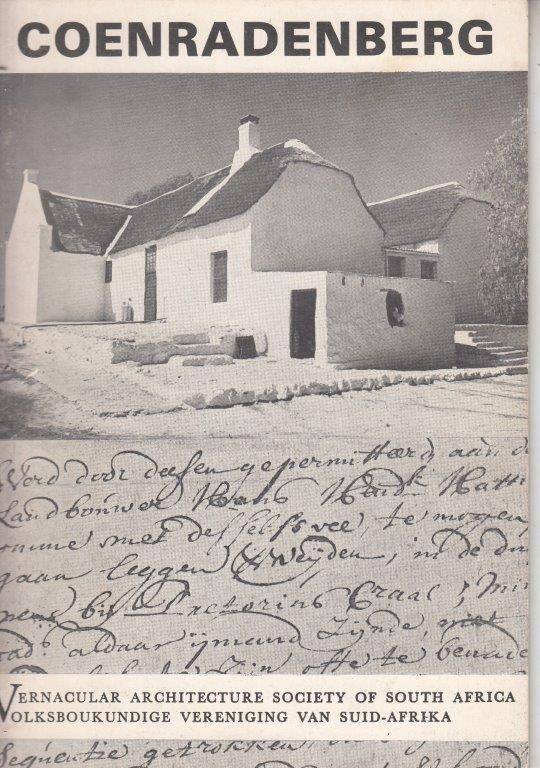 COENRADENBERG
Word door deesen gepermitteerd aan d
Landbouwer Hans Hend:k Hatt
omme met desselfs vee, te mogen
gaan leggen Weijden, in de du
bij Craal; Min
aldaar ijmand Zijnde, niet
Zijn ofte te benade
VERNACULAR ARCHITECTURE SOCIETY OF SOUTH AFRICA
VOLKSBOUKUNDIGE VERENIGING VAN SUID-AFRIKA
Sequentie getrokken